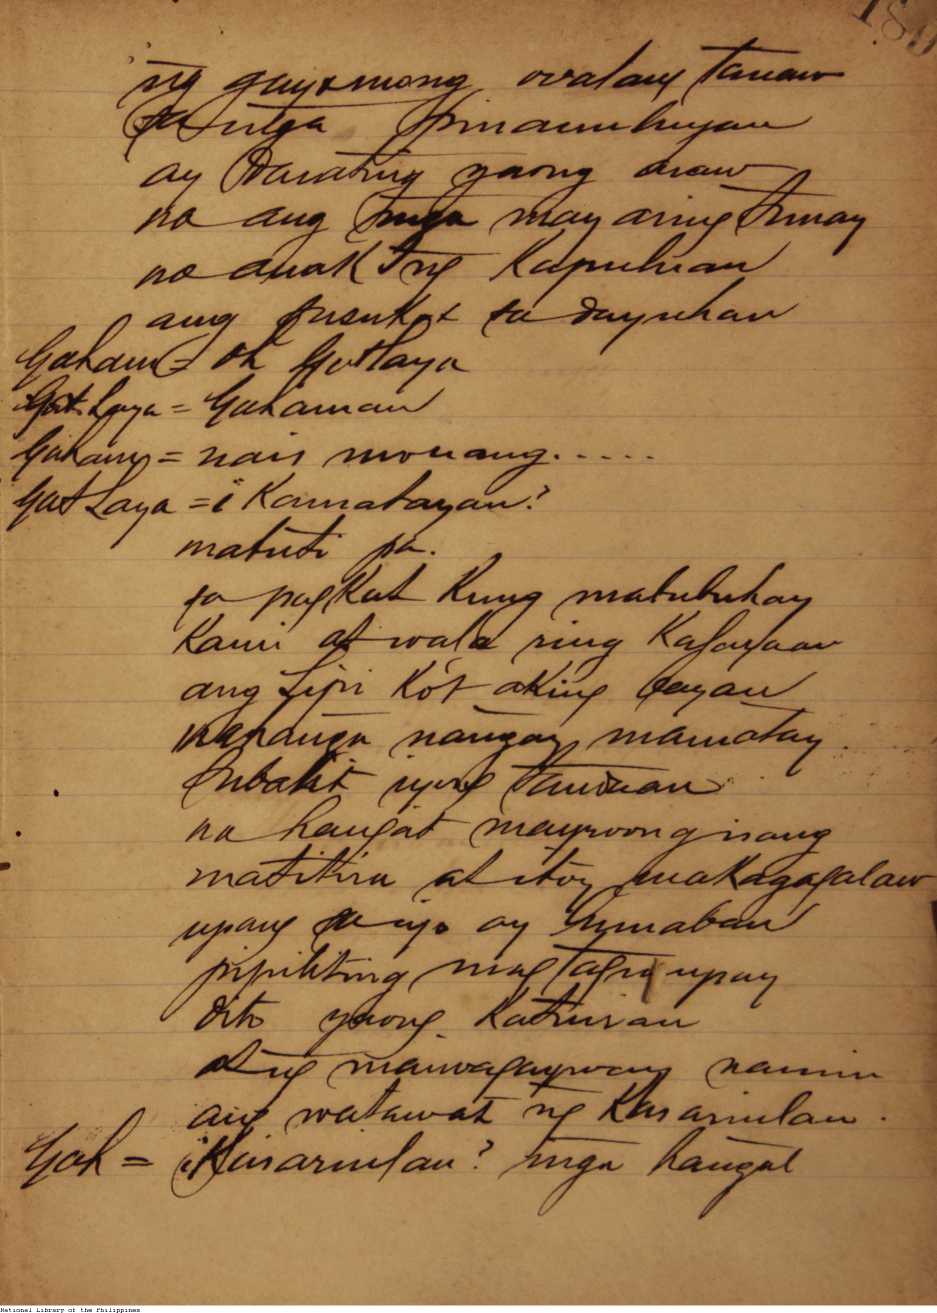 189
ng gaya mong walang tanaw
sa mga pinamuhayan
ay darating yaong araw
na ang mga may aring tunay
na anak ng Kapuluan
ang susukat sa dayuhan
Gaham = Oh Gat Laya
Gat Laya = Gahaman
Gaham = nais mo u ang.....
Gat Laya = ¿Kamatayan?
mabuti pa.
sa pagKat Kung mabubuhay
Kami at wala ring Kalayaan
ang Lipi Ko't aKing bayan
mahanga nangang mamatay.
Subalit iyong tandaan
na hangat mayroong isang
matitira at itoy makagagalaw
upang sa iyo ay lumaban
pipiliting magtagumpay
dito yaong Katuiran
at ng maiwagayway namin
ang watawat ng Kasarinlan.
Gah = ¿Kasarinlan? mga hangal
National Library of the Philippines